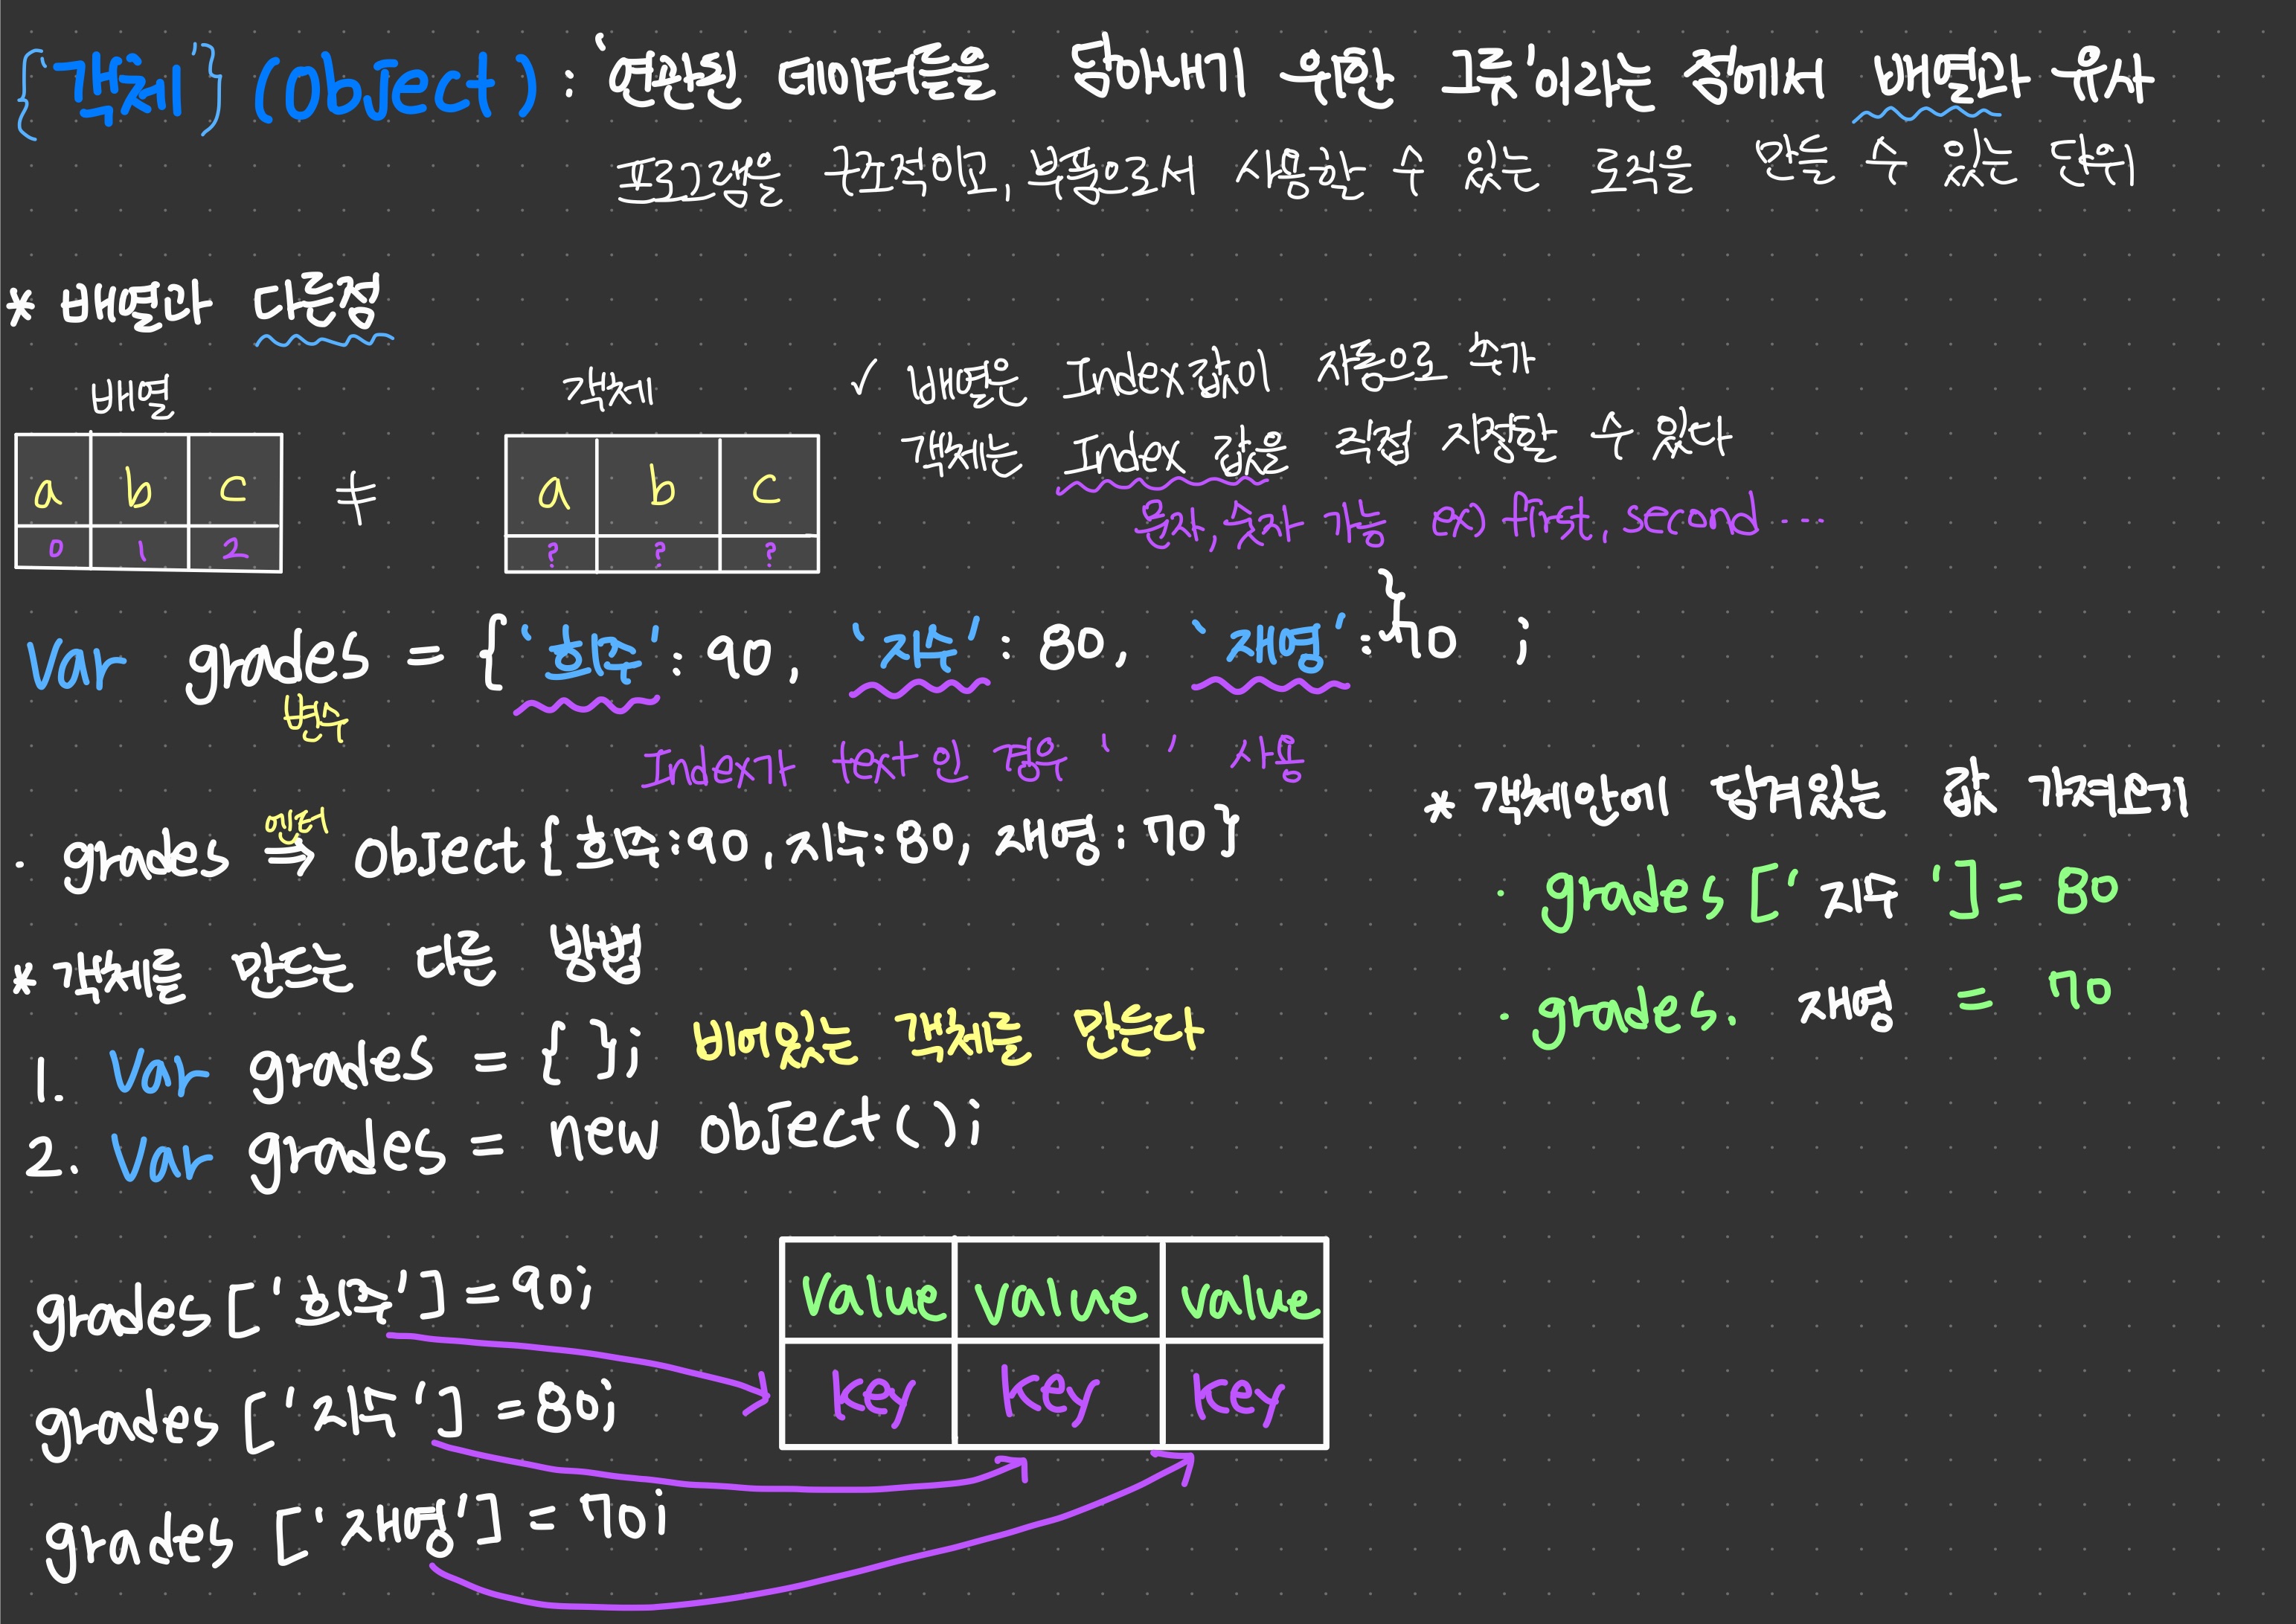 {'객체'} (Object) : '연관된 데이터들을 담아내기 위한 그릇'이라는 점에서 배열과 유사
프로그램을 구조적이고, 부품으로서 사용할 수 있는 로직을 만드는 수 있는 단위
* 배열과 다른점
배열
a b c
0 1 2
≠
객체
a b c
? ? ?
✓ 배열은 Index값이 자동으로 추가
객체는 Index 값을 직접 지정할 수 있다
문자, 숫자 가능 ex) first, second ...
Var grades = {'효주': 90, '지수': 80, '재영': 70} ;
변수
Index가 text 인 경우 ' ' 사용
엔터
· grades ⇒ Object {효주:90, 지수:80, 재영:70}
* 객체를 만드는 다른 방법
1. Var grades = { }; 비어있는 객체를 만든다
2. Var grades = new object();
* 객체안에 담겨있는 값 가져오기
· grades [' 지수 '] = 80
· grades. 재영 = 70
grades ['효주'] = 90;
grades ['지수'] = 80;
grades ['재영'] = 70;
Value Value Value
key key key